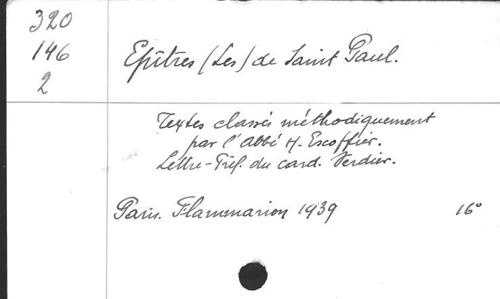 320
146
2
Epîtres (Les) de Saint Paul.
Textes classés méthodiquement
par l'Abbé H. Escoffier.
Lettre-Préf. du card. Verdier.
Paris. Flammarion 1939 16°